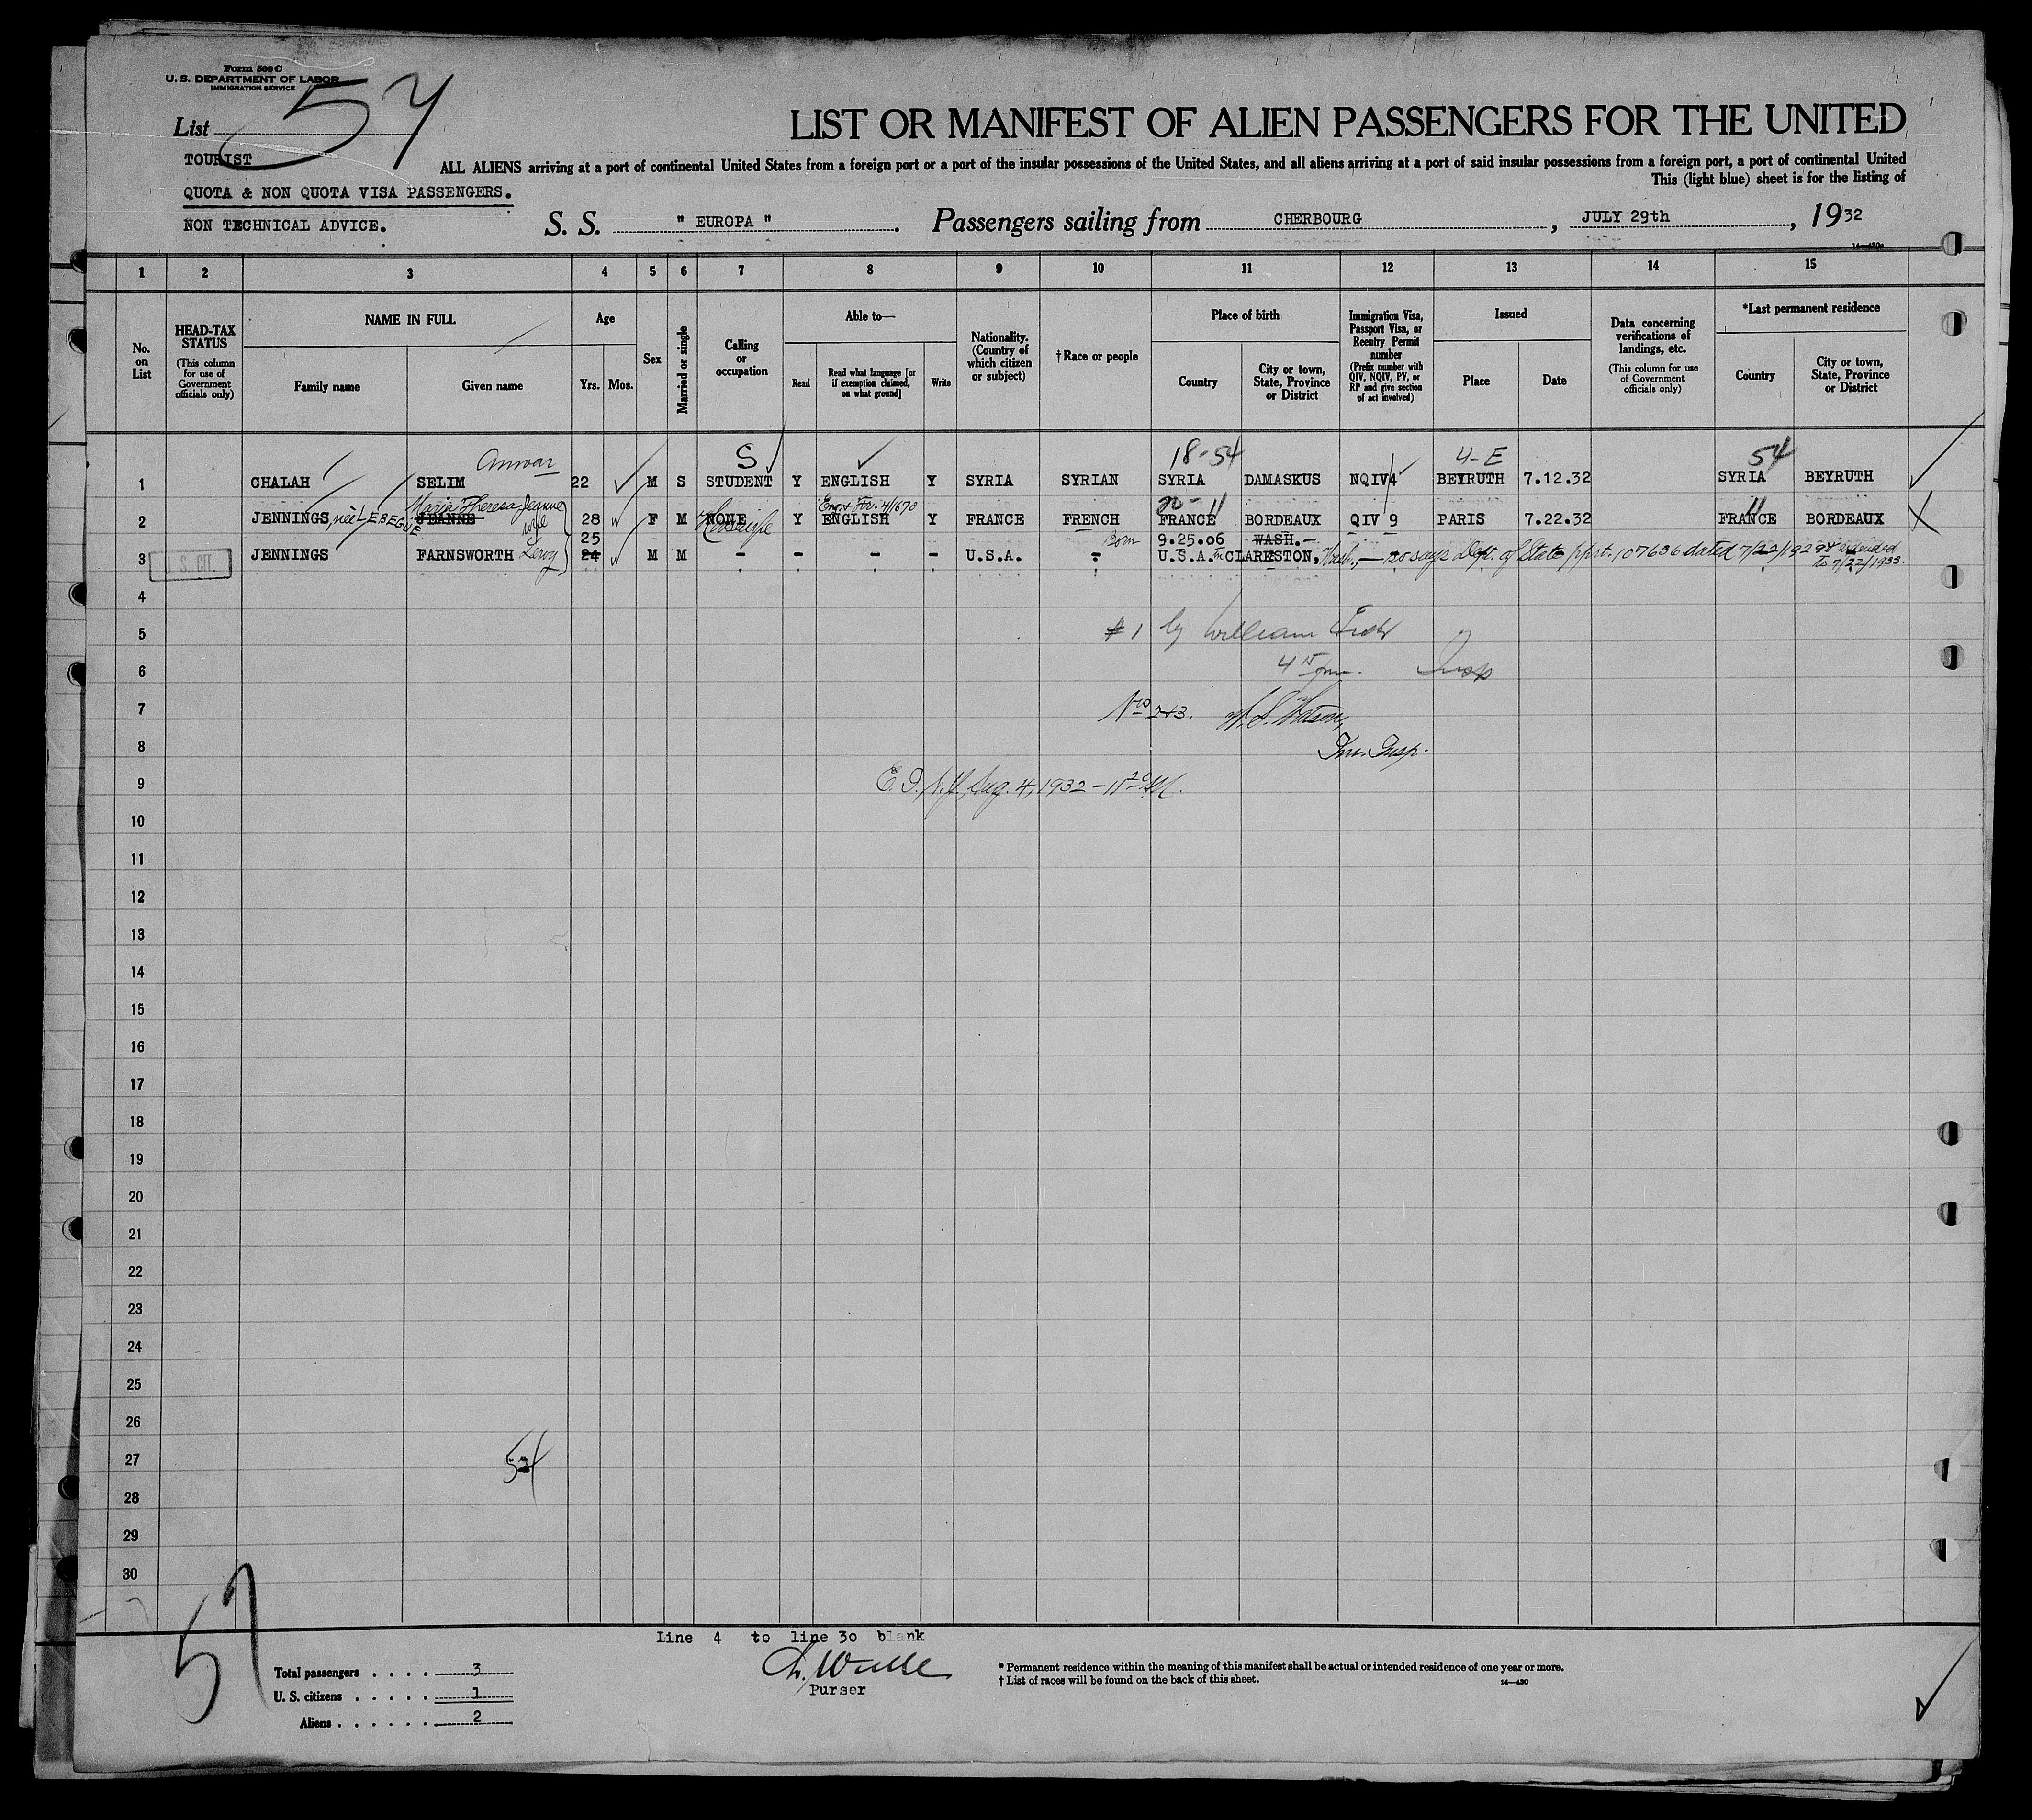 Form 500 C
U. S. DEPARTMENT OF LABOR
IMMIGRATION SERVICE
List 57
TOURIST
QUOTA & NON QUOTA VISA PASSENGERS.
NON TECHNICAL ADVICE.
LIST OR MANIFEST OF ALIEN PASSENGERS FOR THE UNITED
ALL ALIENS arriving at a port of continental United States from a foreign port or a port of the insular possessions of the United States, and all aliens arriving at a port of said insular possessions from a foreign port, a port of continental United
This (light blue) sheet is for the listing of
S. S. " EUROPA " . Passengers sailing from CHERBOURG , JULY 29th , 1932
1 2 3 4 5 6 7 8 9 10 11 12 13 14 15
No. on List
HEAD-TAX STATUS
(This column for use of Government officials only)
NAME IN FULL
Family name
Given name
Age
Yrs. Mos.
Sex
Married or single
Calling or occupation
Able to—
Read
Read what language [or if exemption claimed, on what ground]
Write
Nationality. (Country of which citizen or subject)
†Race or people
Place of birth
Country
City or town, State, Province or District
Immigration Visa, Passport Visa, or Reentry Permit number
(Prefix number with QIV, NQIV, PV, or RP and give section of act involved)
Issued
Place
Date
Data concerning verifications of landings, etc.
(This column for use of Government officials only)
*Last permanent residence
Country
City or town, State, Province or District
Anwar S 18-54 4-E 54
1 CHALAH SELIM 22 M S STUDENT Y ENGLISH Y SYRIA SYRIAN SYRIA DAMASKUS NQIV4 BEYRUTH 7.12.32 SYRIA BEYRUTH
Maria Theresa Jeanne
2 JENNINGS, née LEBEGUE JEANNE wife 28 F M NONE Y ENGLISH Y FRANCE FRENCH FRANCE BORDEAUX QIV 9 PARIS 7.22.32 FRANCE BORDEAUX
25 Born 9.25.06 WASH.
3 U. S. CIT. JENNINGS FARNSWORTH Leroy 24 M M - - - - U.S.A. - U.S.A. In CLARKSTON, Wash., — so says Dept. of State ppst. 107636 dated 7/22/1929 extended
To 7/22/1933.
4
5 #1 by William
6 4 15 pm. Insp
7 No 2+3. Watson,
8 Imm. Insp.
9 Aug. 4, 1932 - 11 20
10
11
12
13
14
15
16
17
18
19
20
21
22
23
24
25
26
27 54
28
29
30
57
Line 4 to line 30 blank
Purser
Total passengers . . . . 3
U. S. citizens . . . . . 1
Aliens . . . . . . 2
* Permanent residence within the meaning of this manifest shall be actual or intended residence of one year or more.
† List of races will be found on the back of this sheet.
14—430